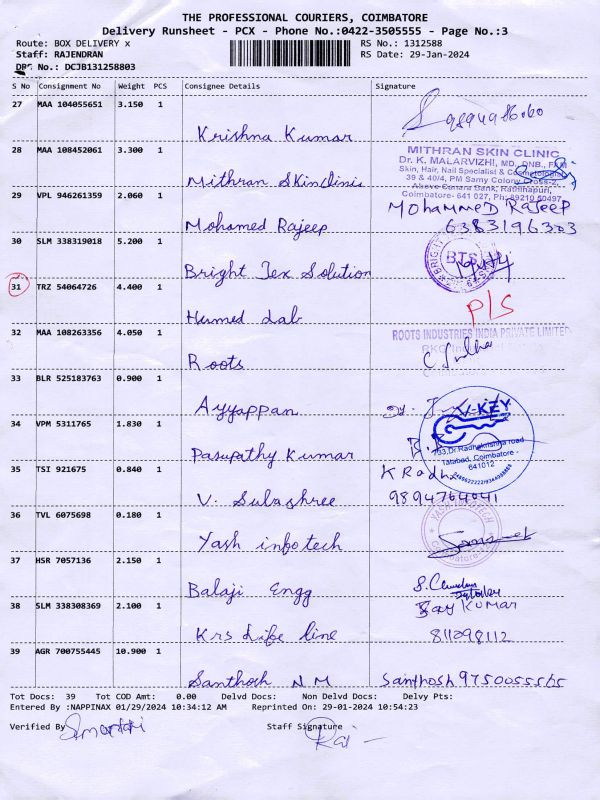 THE PROFESSIONAL COURIERS, COIMBATORE
Delivery Runsheet - PCX - Phone No.:0422-3505555 - Page No.:3
Route: BOX DELIVERY x RS No.: 1312588
Staff: RAJENDRAN RS Date: 29-Jan-2024
DRS No.: DCJB131258803
S No Consignment No Weight PCS Consignee Details Signature
27 MAA 104055651 3.150 1
Krishna Kumar
28 MAA 108452061 3.300 1
MITHRAN SKIN CLINIC
Dr. K. MALARVIZHI, MD, DNB.,
Skin, Hair, Nail Specialist & Cosmetologist
39 & 40/4, PM Samy Colony Cross-2,
Above Canara Bank, Rathinapuri,
Coimbatore- 641 027, Ph: 89210 60497
Mithran Skinclinic
29 VPL 946261359 2.060 1
Mohamed Rajeep MOHAMMED RAJEEP
6383196303
30 SLM 338319018 5.200 1
BRIGHT
BTS
Bright Tex Solution
31 TRZ 54064726 4.400 1
P/S
Humed lab
32 MAA 108263356 4.050 1
ROOTS INDUSTRIES INDIA PRIVATE LIMITED
Roots
33 BLR 525183763 0.900 1
Ayyappan
V-KEY
34 VPM 5311765 1.830 1
Dr.Radhakrishna road
Tatabad, Coimbatore -
641012
Pasupathy Kumar
35 TSI 921675 0.840 1
K Radha
V. Subashree 9894764041
36 TVL 6075698 0.180 1
YASH INFOTECH
Yash infotech
37 HSR 7057136 2.150 1
Balaji Engg
38 SLM 338308369 2.100 1
KUMAR
Krs life line 811098112
39 AGR 700755445 10.900 1
Santhosh N M Santhosh 9750055565
Tot Docs: 39 Tot COD Amt: 0.00 Delvd Docs: Non Delvd Docs: Delvy Pts:
Entered By :NAPPINAX 01/29/2024 10:34:12 AM Reprinted On: 29-01-2024 10:54:23
Verified By Staff Signature
Raj